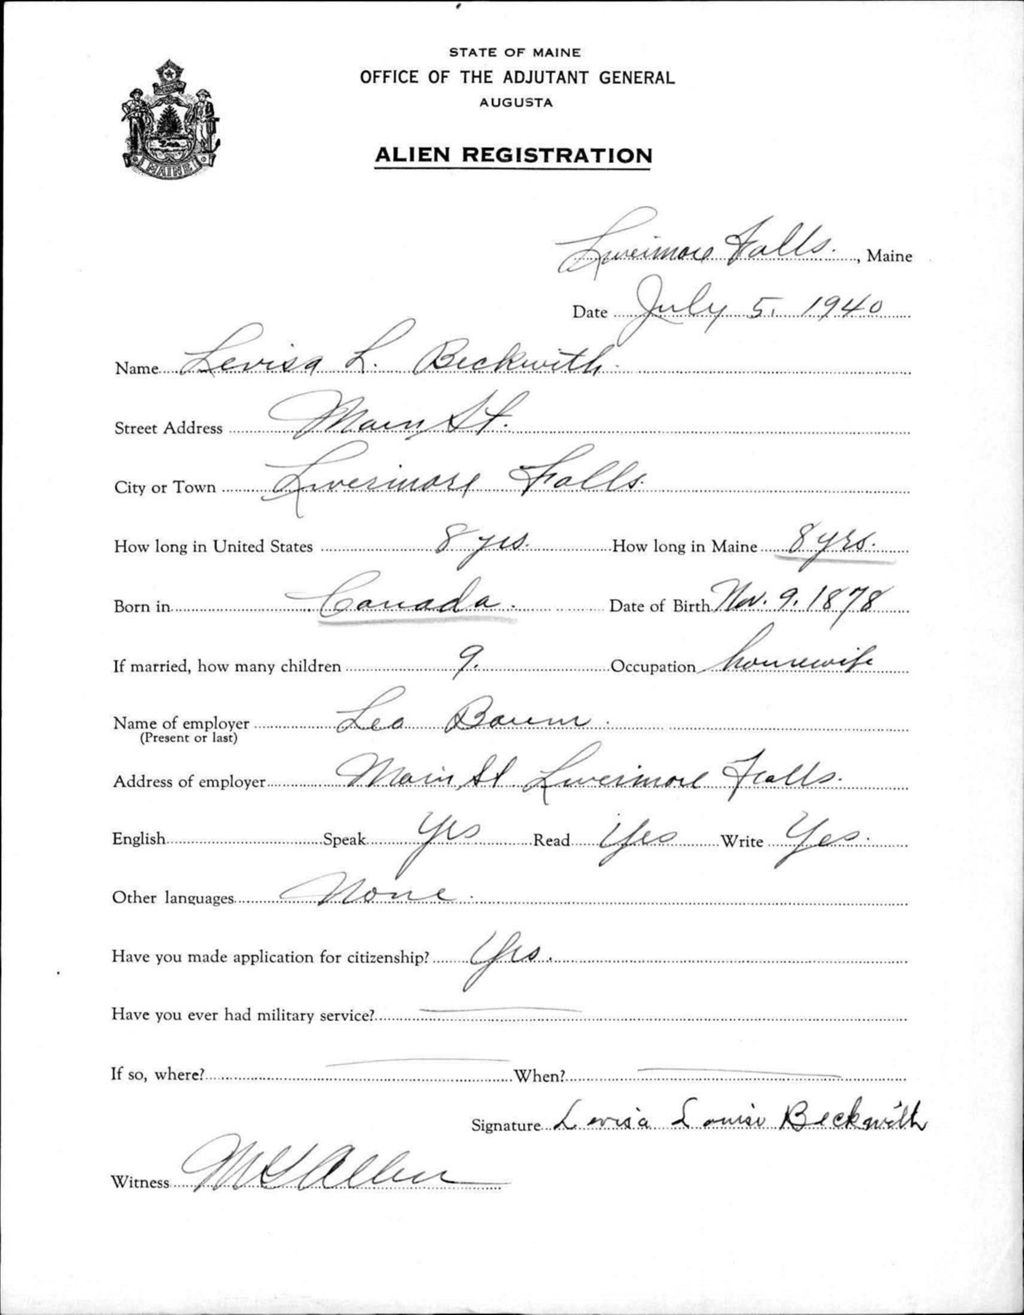 STATE OF MAINE
OFFICE OF THE ADJUTANT GENERAL
AUGUSTA
ALIEN REGISTRATION
MAINE
Livermore Falls, Maine
Date July 5, 1940
Name Levisa L. Beckwith
Street Address Main St.
City or Town Livermore Falls.
How long in United States 8 yrs. How long in Maine 8 yrs.
Born in Canada. Date of Birth Nov. 9, 1878
If married, how many children 9. Occupation housewife
Name of employer Leo Baum.
(Present or last)
Address of employer Main St Livermore Falls.
English Speak Yes Read Yes Write Yes.
Other languages None.
Have you made application for citizenship? Yes.
Have you ever had military service? —
If so, where? — When? —
Signature Levisa Louise Beckwith
Witness Allen